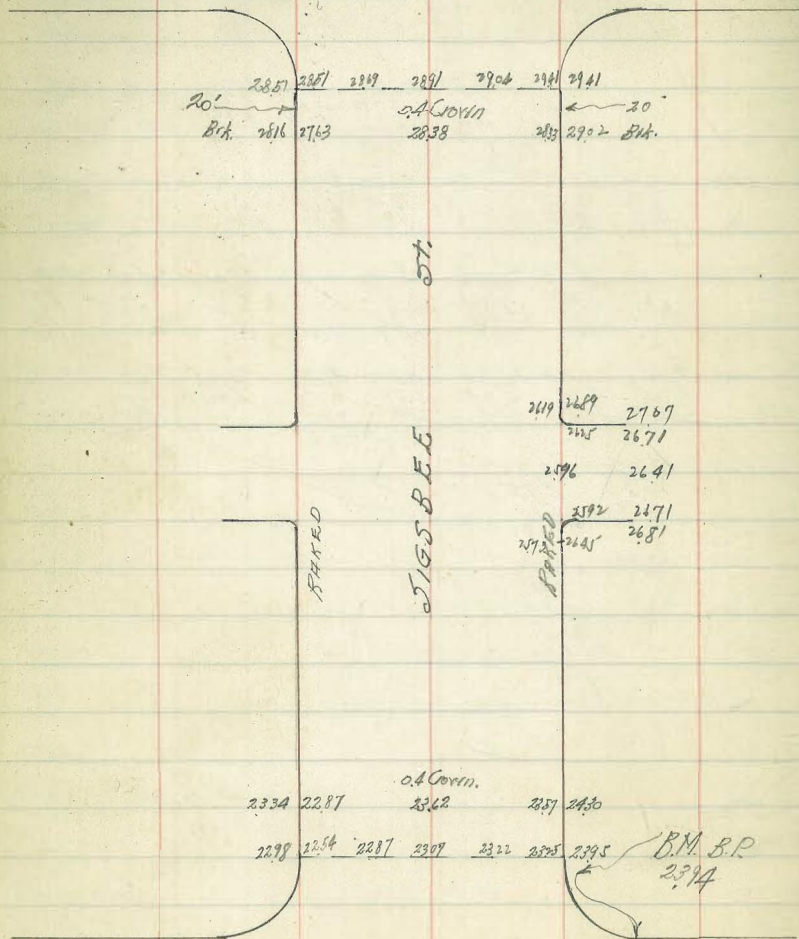 2851 2851 2869 2891 2904 2941 2941
20' 0.4 Crown 20'
Brk. 2816 2763 2838 2833 2902 Brk.
ST.
2619 2689 2767
2625 2671
2596 2641
2592 2671
2681
2572 2645
SIGSBEE
RAKED
RAKED
0.4 Crown.
2334 2287 2362 2357 2430
2298 2254 2287 2309 2322 2395
B.M. B.P.
2394